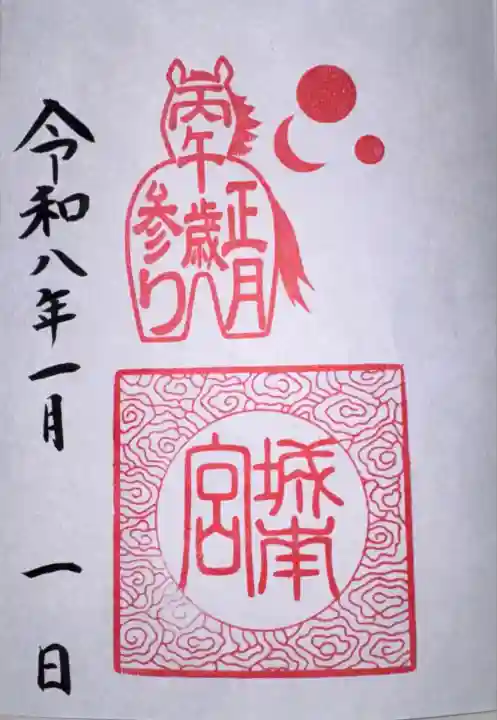 丙午
歳
正月
参り
城南
宮
令和八年一月 一日